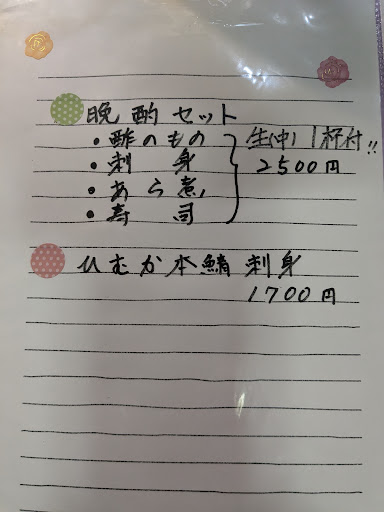 晩酌セット
・酢のもの
・刺身
・あら煮
・寿司
生(中)1杯付!!
2500円
ひむか本鯖刺身
1700円